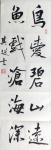 鳥愛碧山遠
魚戲滄海深